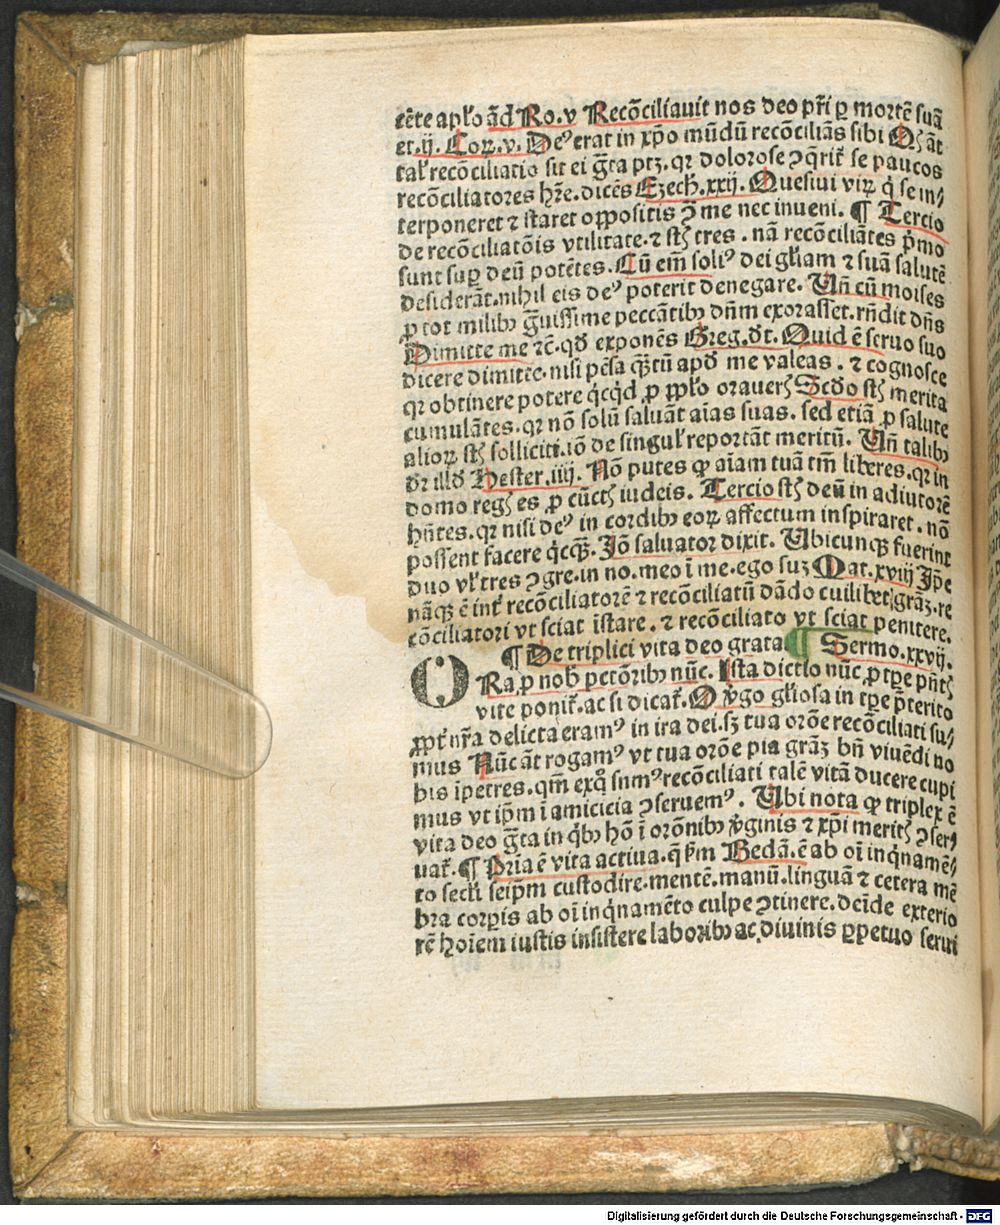 cēte aplo ād Ro.v Recōciliavit nos deo pr̄i ꝑ mortē suā
et.ij. Coꝝ.v. De⁹ erat in xp̄o mūdū recōciliās sibi Qꝭ āt
tal' recōciliatio sit ei ḡta ptꝫ.qꝛ dolorose ꝯq̄rit' se paucos
recōciliatores hr̄e.dicēs Ezech.xxij. Quesiui viꝝ q̇ se in/
terponeret ⁊ staret oppositis ꝯ̄ me nec inueni. ¶ Tercio
de recōciliatōis vtilitate.⁊ stꝭ tres . nā recōciliātes p̄mo
sunt suꝑ deū potētes. Cū em̄ soli⁹ dei gl'iam ⁊ suā salutē
desiderāt.nihil eis de⁹ poterit denegare. Un̄ cū moises
ꝓ tot milibꝫ ḡuissime peccātibꝫ dn̄m exorasset.rn̄dit dn̄s
Dimitte me ⁊c̄.qd̄ exponēs Greg.dt̄. Quid ē seruo suo
dicere dimitte.nisi pēsa q̄ꝫtū apd̄ me valeas . ⁊ cognosce
qꝛ obtinere potere q̇cq̇d ꝓ ppl'o oraueꝭ Scd̄o stꝭ merita
cumulātes.qꝛ nō solū saluāt aīas suas. sed etiā ꝓ salute
alioꝝ stꝭ solliciti.iō de singul' reportāt meritū. Un̄ talibꝫ
dꝛ illd̄ Hester.iiij. Nō putes ꝙ aīam tuā tm̄ liberes.qꝛ in
domo regꝭ es ꝓ cūctꝭ iudeis. Tercio stꝭ deū in adiutorē
hn̄tes.qꝛ nisi de⁹ in cordibꝫ eoꝝ affectum inspiraret . nō
possent facere q̇cq̄ꝫ. Iō saluator dixit. Ubicunqꝫ fuerint
duo vl' tres ꝯgre.in no.meo ī me.ego suꝫ Mat.xviij Ip̄e
nāqꝫ ē int' recōciliatorē ⁊ recōciliatū dādo cuilibet grāꝫ.re
cōciliatori vt sciat īstare. ⁊ recōciliato vt sciat penitere.
¶ De triplici vita deo grata ¶ Sermo.xxvij.
ORa ꝓ nob' pctōribꝫ nūc. Ista dictio nūc ꝓ tꝑe pn̄tꝭ
vite ponit'.ac si dicat'. O v̇go gl'iosa in tꝑe p̄terito
ꝓpt' nr̄a delicta eram⁹ in ira dei.sꝫ tua orōe recōciliati su/
mus Nūc āt rogam⁹ vt tua orōe pia grāꝫ bn̄ viuēdi no
bis īpetres.qm̄ exq̇ sum⁹ recōciliati talē vitā ducere cupi
mus vt ip̄m ī amicicia ꝯseruem⁹ . Ubi nota ꝙ triplex ē
vita deo ḡta in q̇bꝫ hō ī orōnibꝫ v̇ginis ⁊ xp̄i meritꝭ ꝯser/
uat'. ¶ Pria ē vita actiua.q̄ ẜm Bedā.ē ab oī inq̇namē/
to secl'i seip̄m custodire.mentē.manū.linguā ⁊ cetera mē
bra corꝑis ab oī inq̇namēto culpe ꝯtinere.deīde exterio
rē hoīem iustis insistere laboribꝫ ac diuinis ꝑpetuo serui
Digitalisierung gefördert durch die Deutsche Forschungsgemeinschaft - DFG